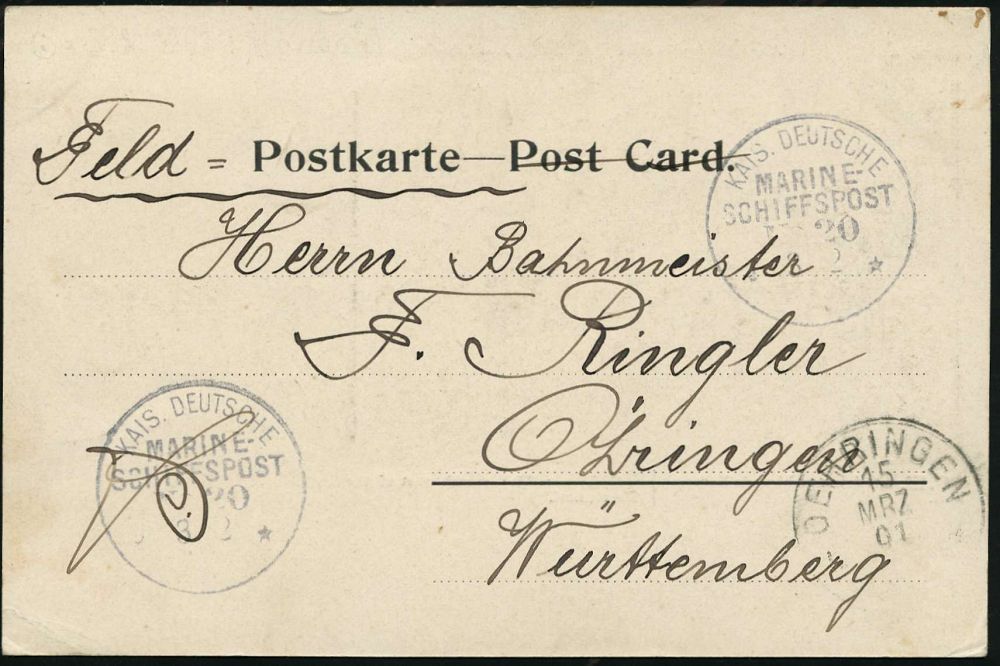 Feld = Postkarte — Post Card.
KAIS. DEUTSCHE
MARINE-
SCHIFFSPOST
20
2
Herrn Bahnmeister
F. Ringler
Öhringen
Württemberg
KAIS. DEUTSCHE
MARINE-
SCHIFFSPOST
20
2
OEHRINGEN
15
MRZ
01